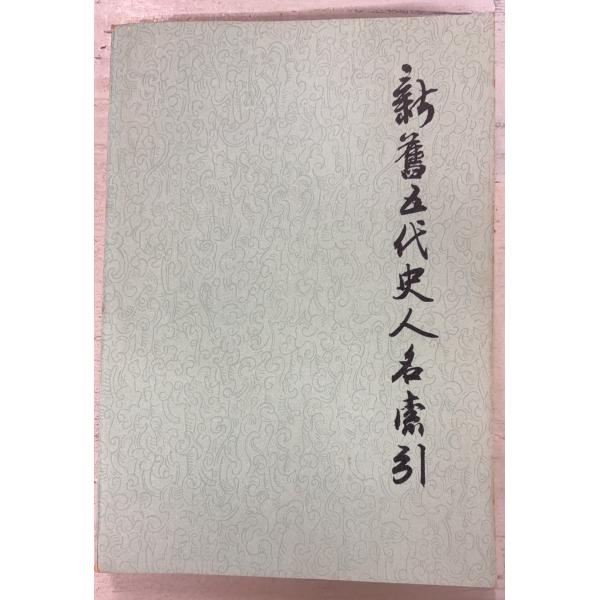 新舊五代史人名索引